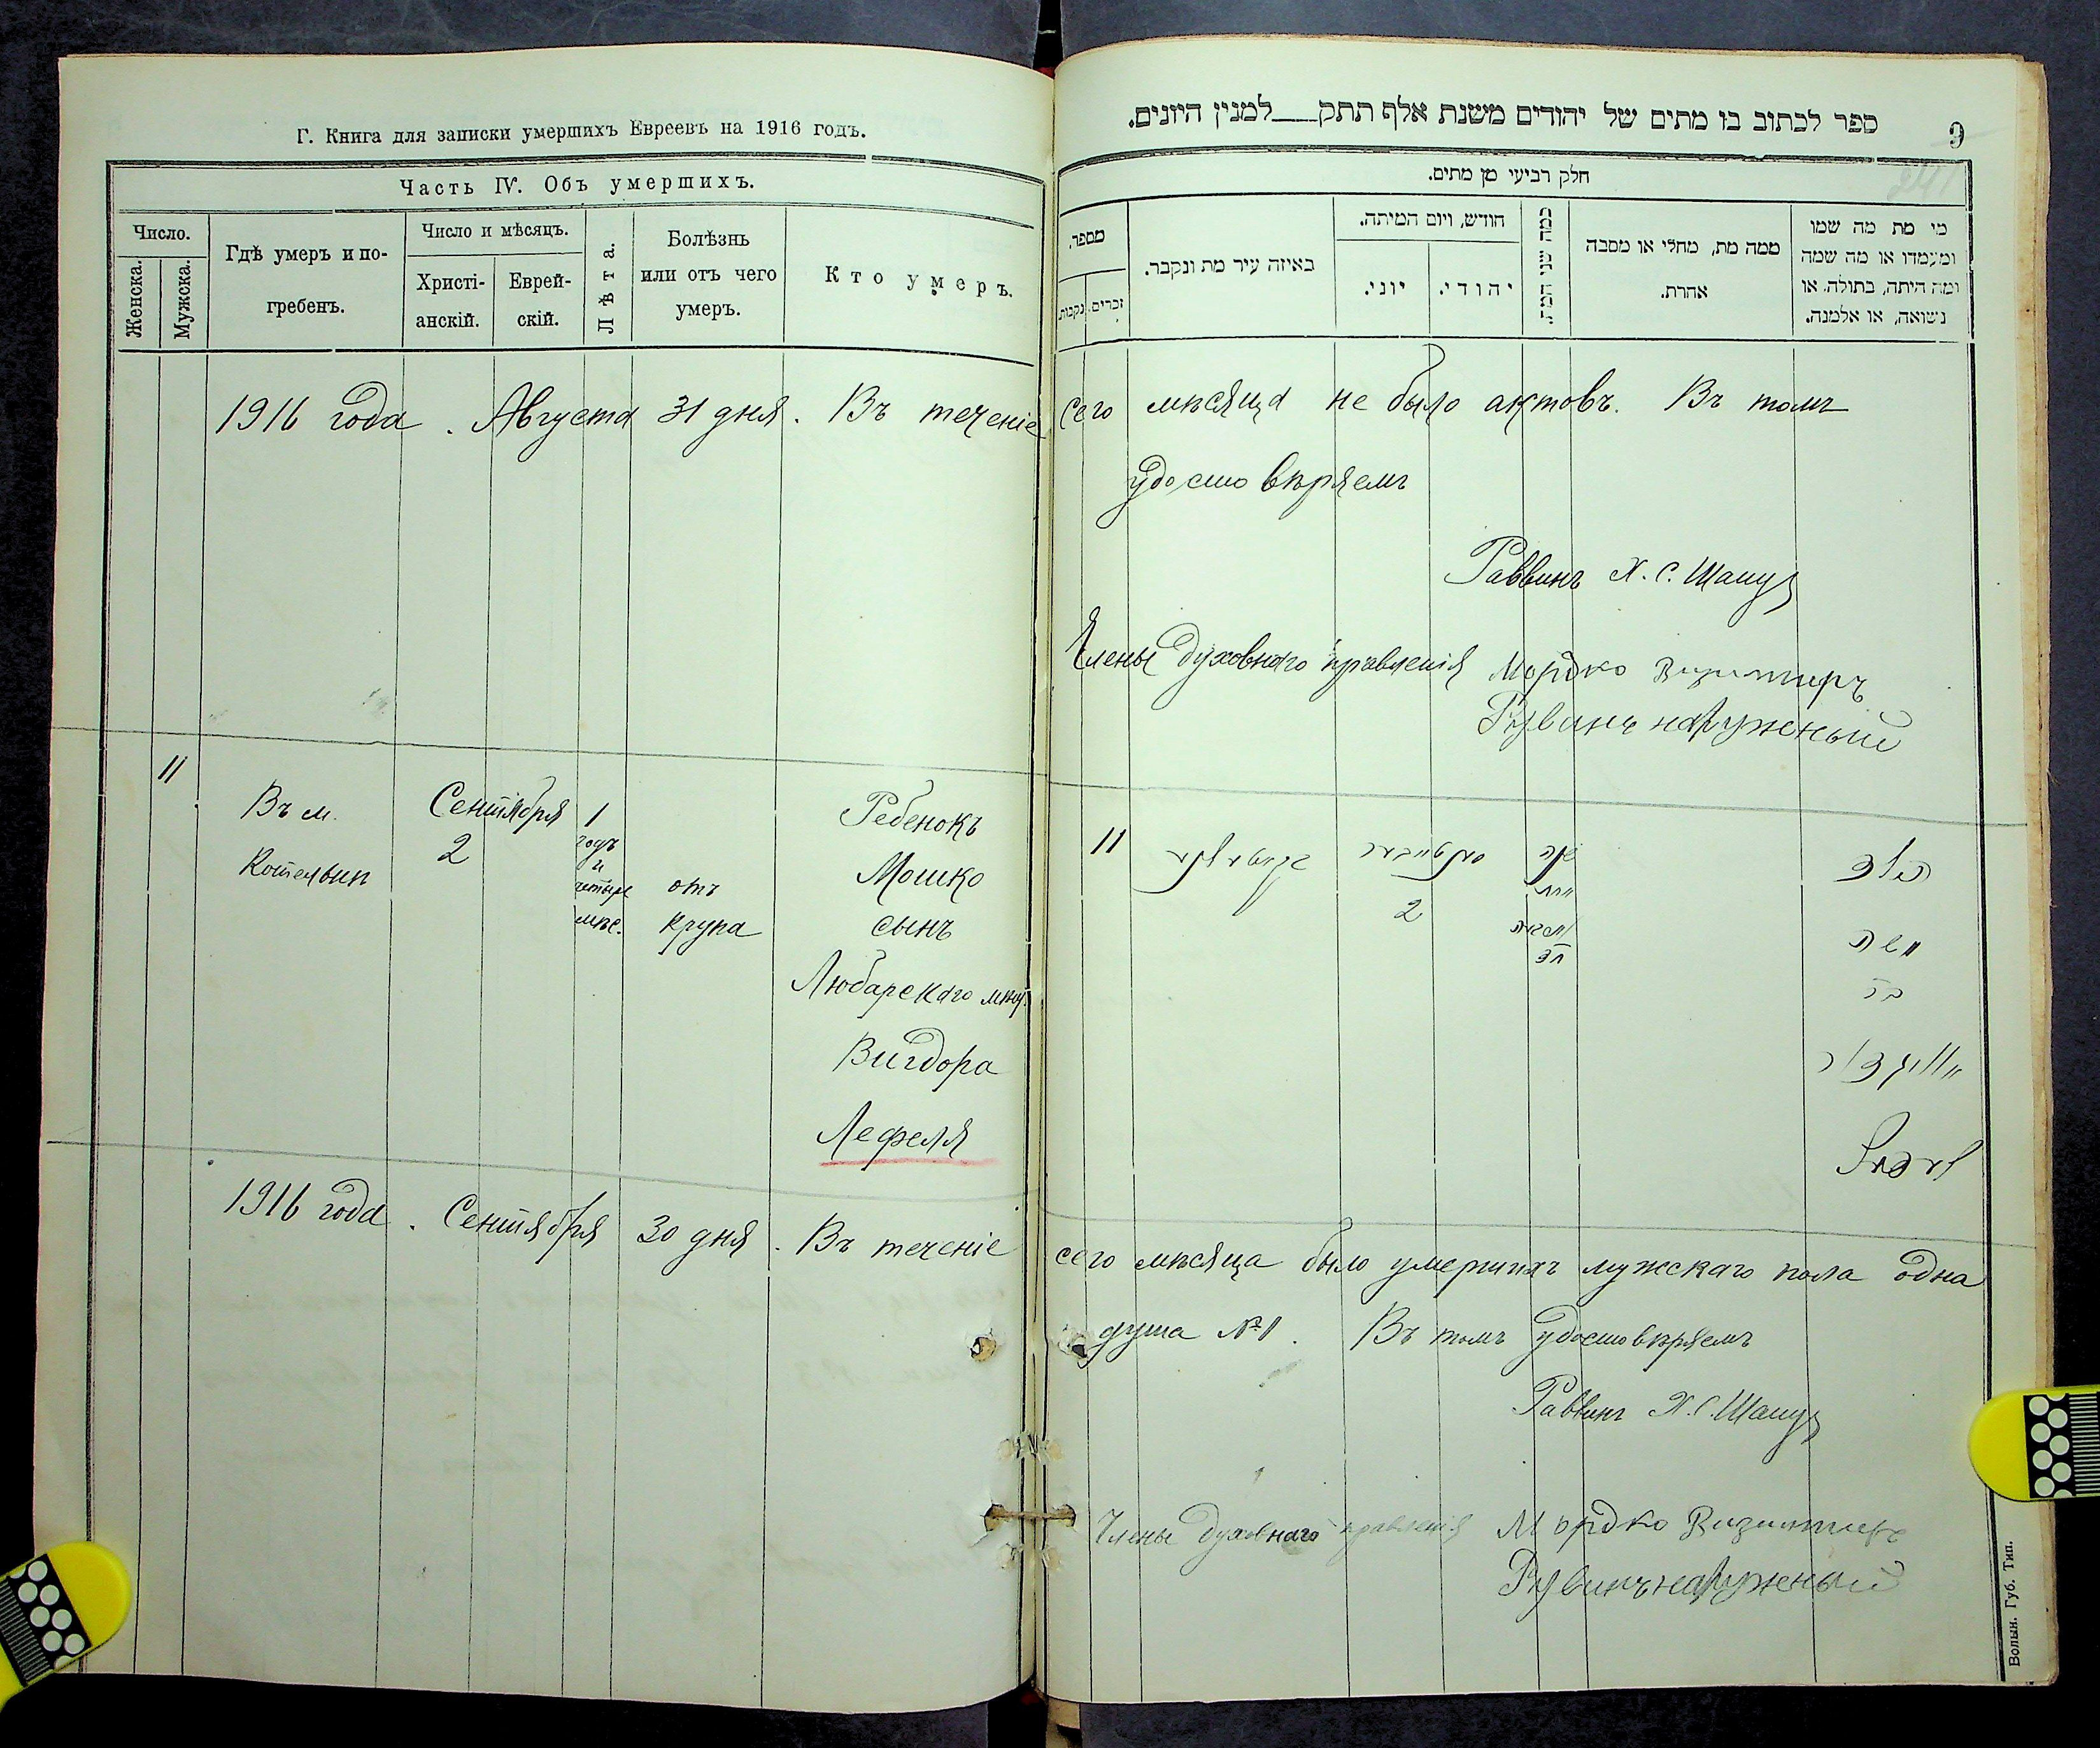 Г. Книга для записки умершихъ Евреевъ на 1916 годъ.
Часть IV. Объ умершихъ.
Число.
Женска.
Мужска.
Гдѣ умеръ и по-
гребенъ.
Число и мѣсяцъ.
Христі-
анскій.
Еврей-
скій.
Лѣта.
Болѣзнь
или отъ чего
умеръ.
Кто умеръ.
ספר לכתוב בו מתים של יהודים משנת אלף תתק___למנין היונים.
9
241
חלק רביעי מן מתים.
מי מת מה שמו
ומעמדו או מה שמה
ומה היתה, בתולה. או
נשואה, או אלמנה.
ממה מת, מחלי או מסבה
אהרת.
כמה שני המת.
חודש, ויום המיתה.
יהודי.
יוני.
באיזה עיר מת ונקבר.
מספר.
זכרים.
נקבות
1916 года. Августа 31 дня. Въ теченіе сего мѣсяца не было актовъ. Въ томъ
удостовѣряемъ
Раввинъ Х. С.
Члены Духовнаго правленія Мордко
Рувинъ наружный
11
Въ м.
Котельни
Сентября
2
1
годъ
и
четыре
мѣс.
отъ
крупа
Ребенокъ
Мошко
сынъ
Любарскаго мѣщ.
Вигдора
Лефеля
11
2
שנה
הילד
משה
בר
1916 года. Сентября 30 дня. Въ теченіе сего мѣсяца было умершихъ мужскаго пола одна
душа №1. Въ томъ удостовѣряемъ
Раввинъ Х. С.
Члены Духовнаго правленія Мордко
Рувинъ наружный
Волын. Губ. Тип.